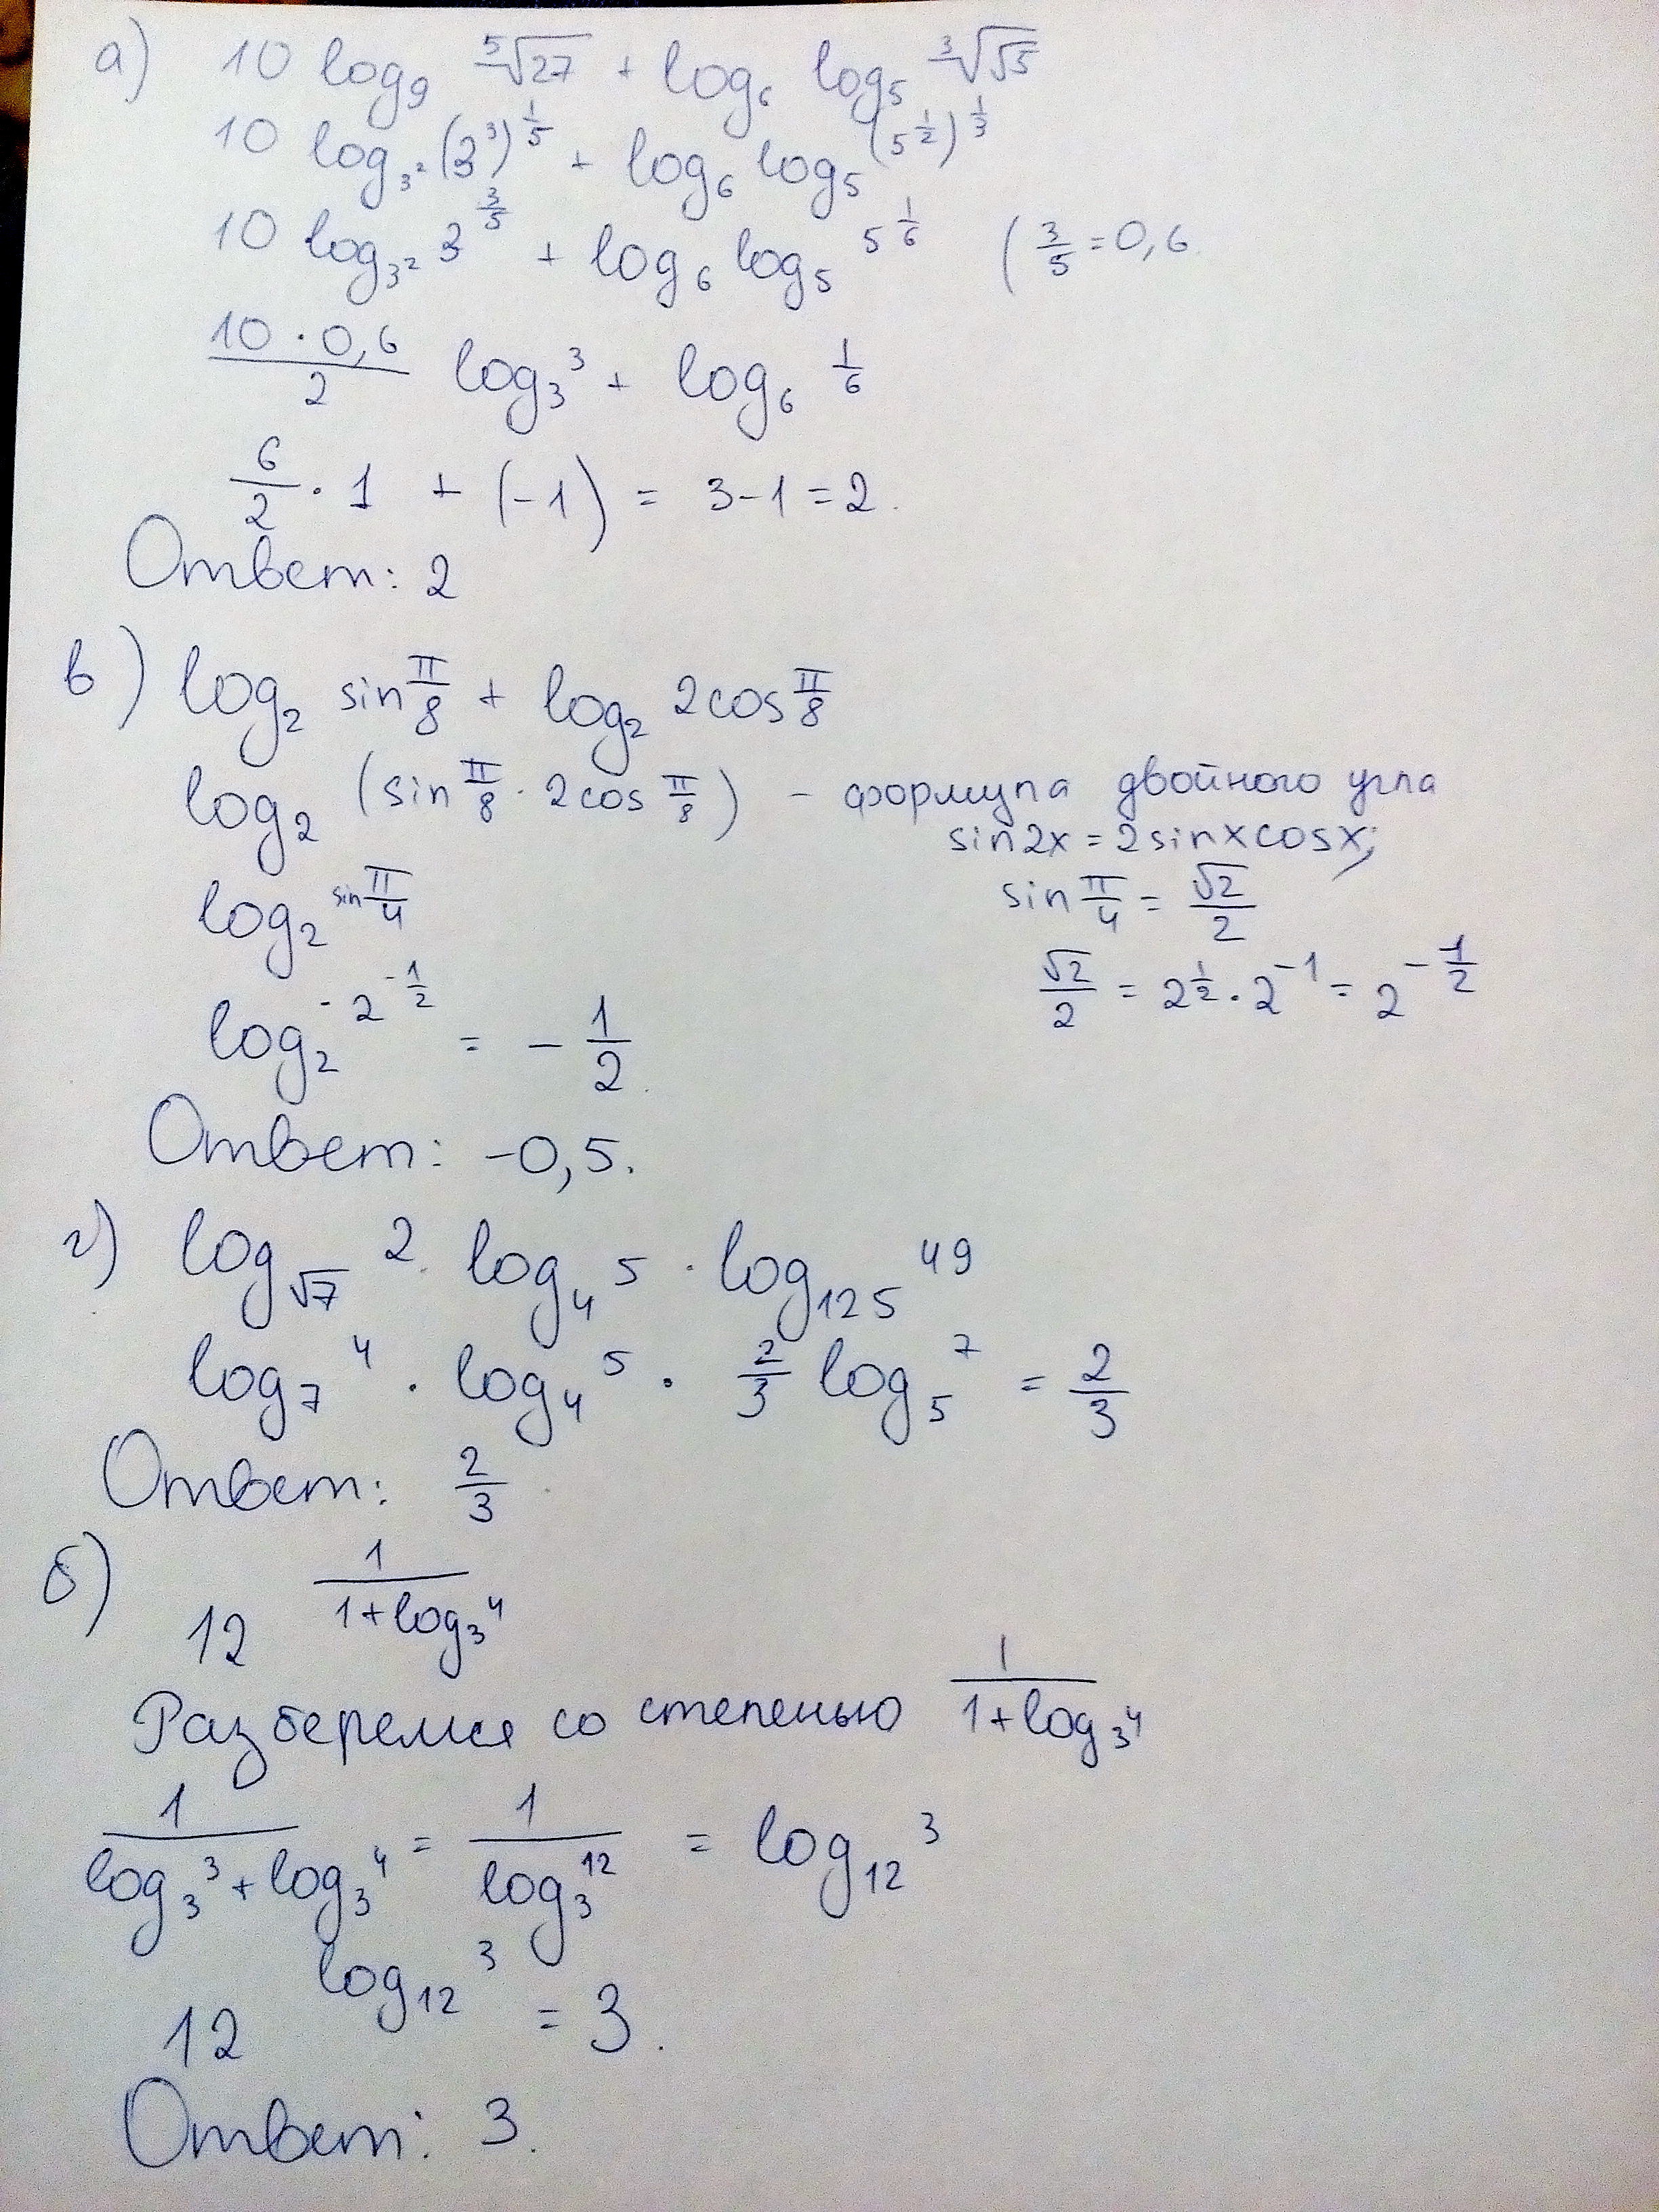 а) 10 log₉ ⁵√27 + log₆ log₅ ³√√5
10 log₃² (3³)^(1/5) + log₆ log₅ (5^(1/2))^(1/3)
10 log₃² 3^(3/5) + log₆ log₅ 5^(1/6) ( 3/5 = 0,6
(10 · 0,6)/2 log₃ 3 + log₆ 1/6
6/2 · 1 + (-1) = 3-1 = 2.
Ответ: 2
в) log₂ sin π/8 + log₂ 2cos π/8
log₂ (sin π/8 · 2cos π/8) - формула двойного угла
sin2x = 2sinxcosx;
log₂ sin π/4 sin π/4 = √2/2
√2/2 = 2^(1/2) · 2^(-1) = 2^(-1/2)
log₂ 2^(-1/2) = - 1/2.
Ответ: -0,5.
г) log_√7 2 · log₄ 5 · log₁₂₅ 49
log₇ 4 · log₄ 5 · 2/3 log₅ 7 = 2/3
Ответ: 2/3
б) 12^(1/(1+log₃ 4))
Разберемся со степенью 1/(1+log₃ 4)
1/(log₃ 3 + log₃ 4) = 1/(log₃ 12) = log₁₂ 3
12^(log₁₂ 3) = 3.
Ответ: 3.